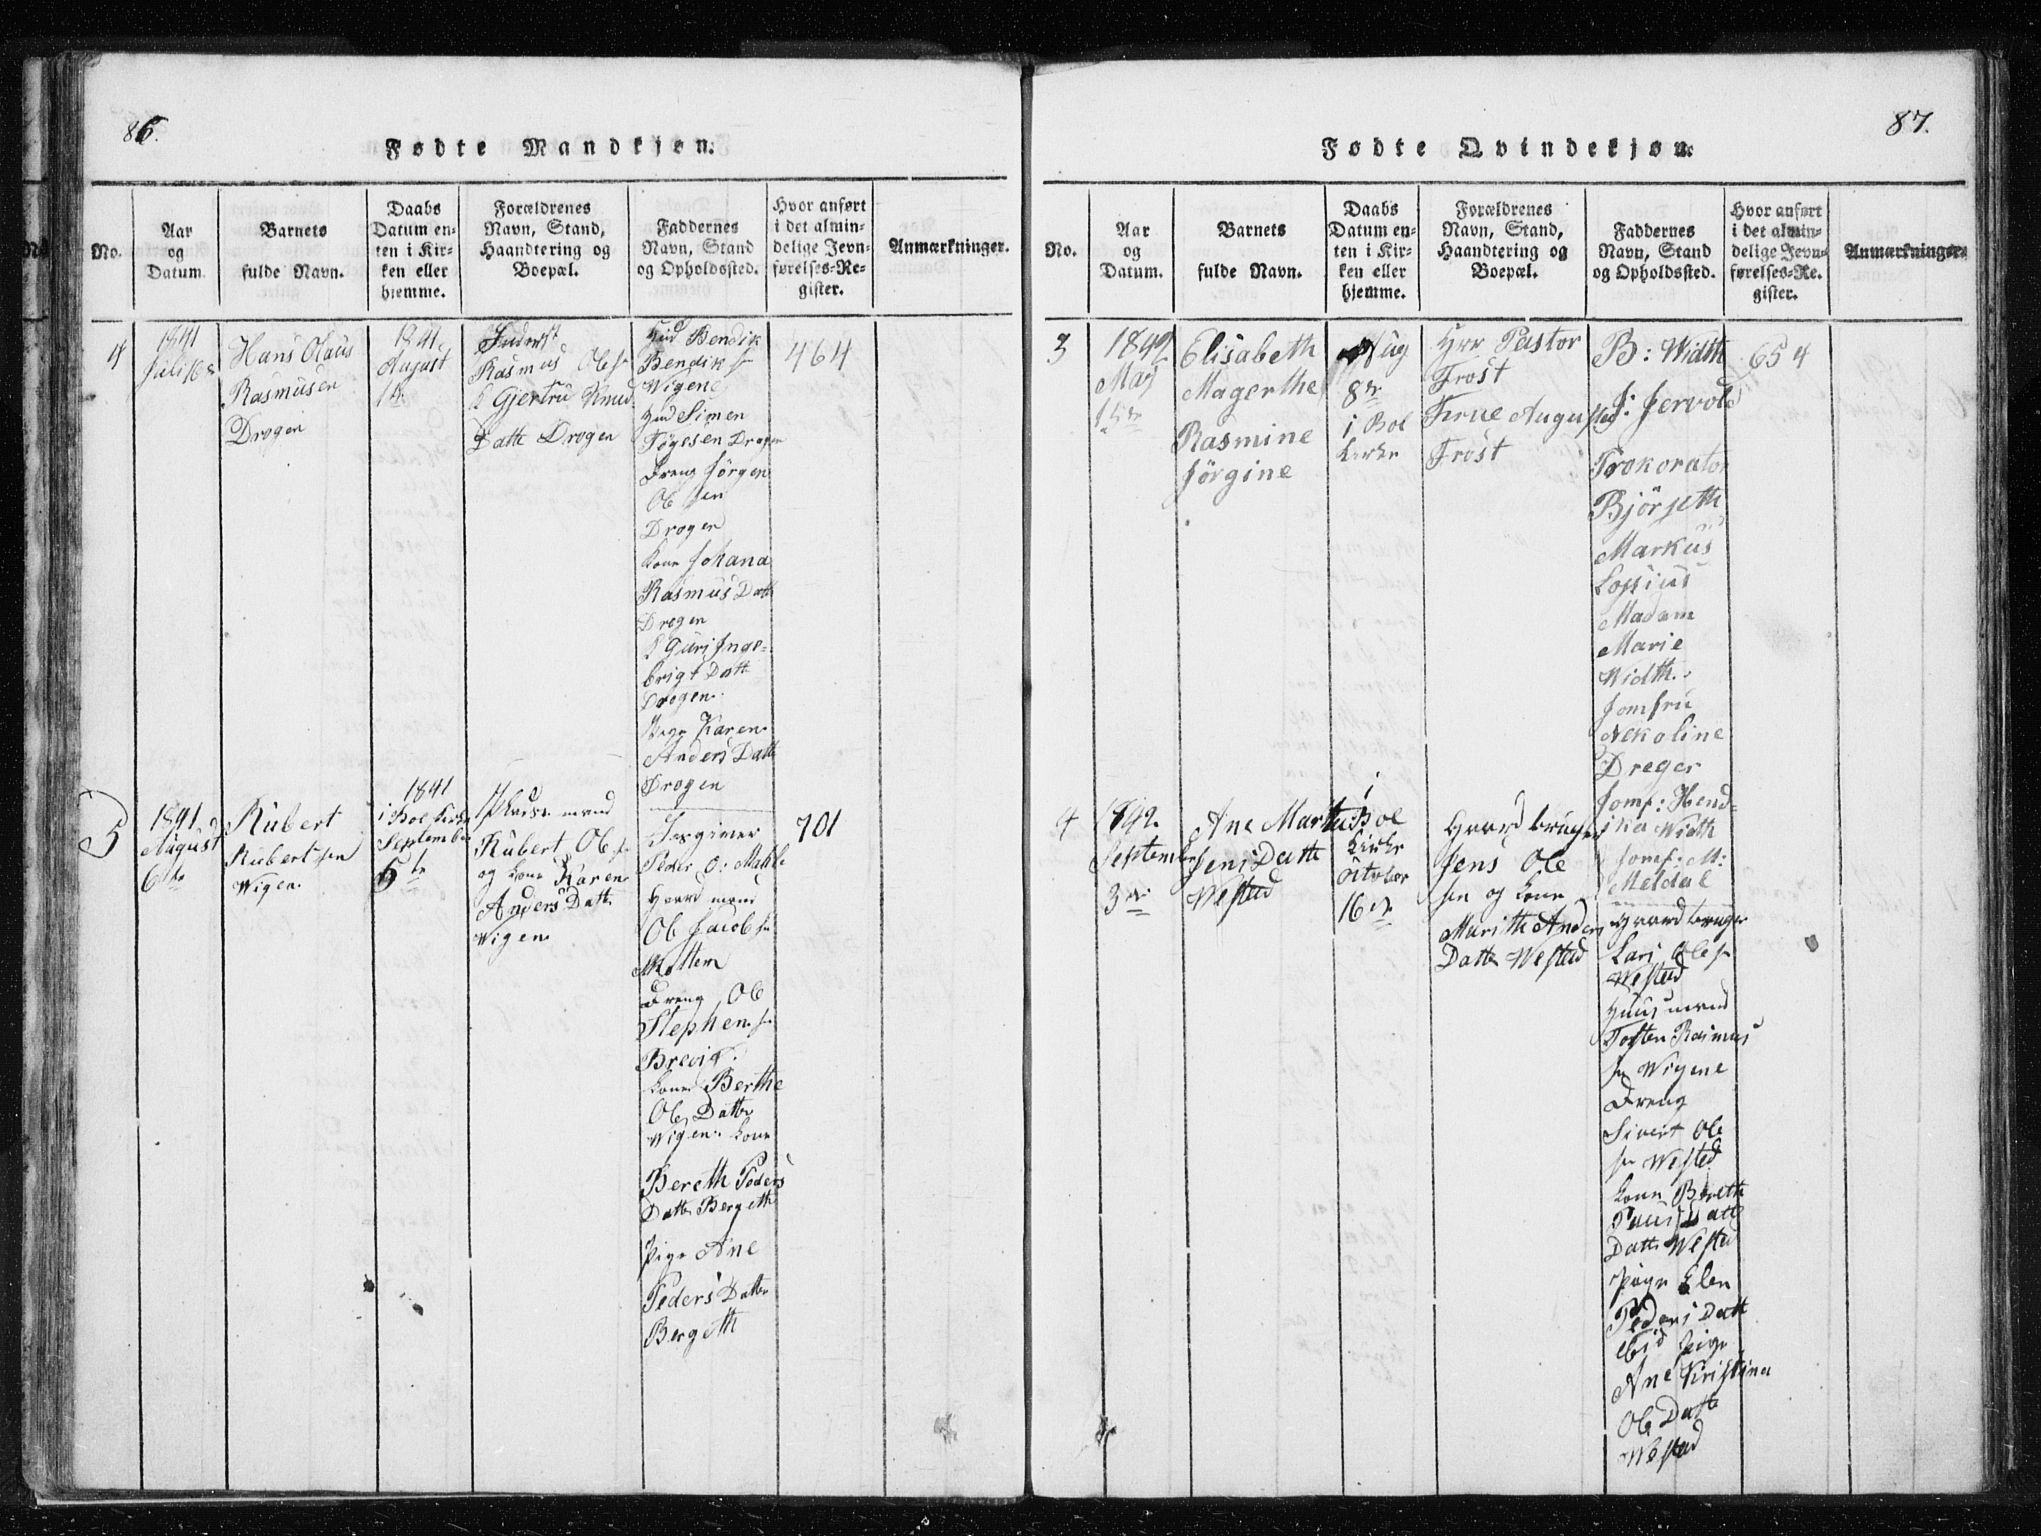 86.
Fødte Mandkjøn.
No.
Aar
og
Datum.
Barnets
fulde Navn.
Daabs
Datum en-
ten i Kir-
ken eller
hjemme.
Forældrenes
Navn, Stand,
Haandtering og
Boepæl.
Faddernes
Navn, Stand
og Opholdssted.
Hvor anført
i det almin-
delige Jevn-
førelses-Re-
gister.
Anmærkninger.
4
1841
Juli
Hans Olaus
Rasmusen
Drogen
1841
August
Inderst
Rasmus Ole sn
Gjertru Knud
Datte Drogen
Bendik
Bendik sn
Wigene
Simen
Drogen
Dreng Jörgen
Ole sen
Drogen
Kone Johana
Rasmus Datte
Drogen
Guri Inge-
brigt Datte
Drogen.
Karen
Anders Datte
Drogen
464
5
1841
August
6te
Rubert
Rubert sen
Wigen
1841
i Boe Kirke
September
5te
Rubert Ole sn
og kone Karen
Anders Datte
Wigen
Peder O:
Gaardmand
Ole Jacob sn
Dreng Ole
Stephen sn
Brevig.
kone Berthe
Ole Datte
Wigen. kone
Bereth Peders
Datte Bergeth
Pige Ane
Peders Datte
Bergeth
701
87.
Fødte Qvindekjøn.
No.
Aar
og
Datum.
Barnets
fulde Navn.
Daabs
Datum en-
ten i Kir-
ken eller
hjemme.
Forældrenes
Navn, Stand,
Haandtering og
Boepæl.
Faddernes
Navn, Stand
og Opholdssted.
Hvor anført
i det almin-
delige Jevn-
førelses-Re-
gister.
Anmærkninger.
3
1842
Maj
Elisabeth
Magerthe
Rasmine
Jörgine
Aug
8de
i Boe
Kirke
Hrr Pastor
Frost
Frue Augusta
Frost
B: Width
J: Jervold
Prokorator
Björseth
Markus
Lossius
Madam
Marie
Width.
Jomfru
Nekoline
Dreger
Jomf: Hend-
rika Width
Jomf: M:
Meldal
654
4
1842.
September
3die
Ane Marthe
Jens Datte
Westad
i
Boe
Kirke
October
16de
Gaardbruger
Jens Ole
sen og kone
Marithe Anders
Datte Westad
Gaardbruger
Lars Ole sn
Westad
Huusmand
Tosten Rasmus
sn Wigene
Dreng
Sivert Ole
sn Wested
kone Bereth
Datte Westad
Pige Elen
Peders Datte
Eid Pige
Ane Kristina
Ole Datte
Westad